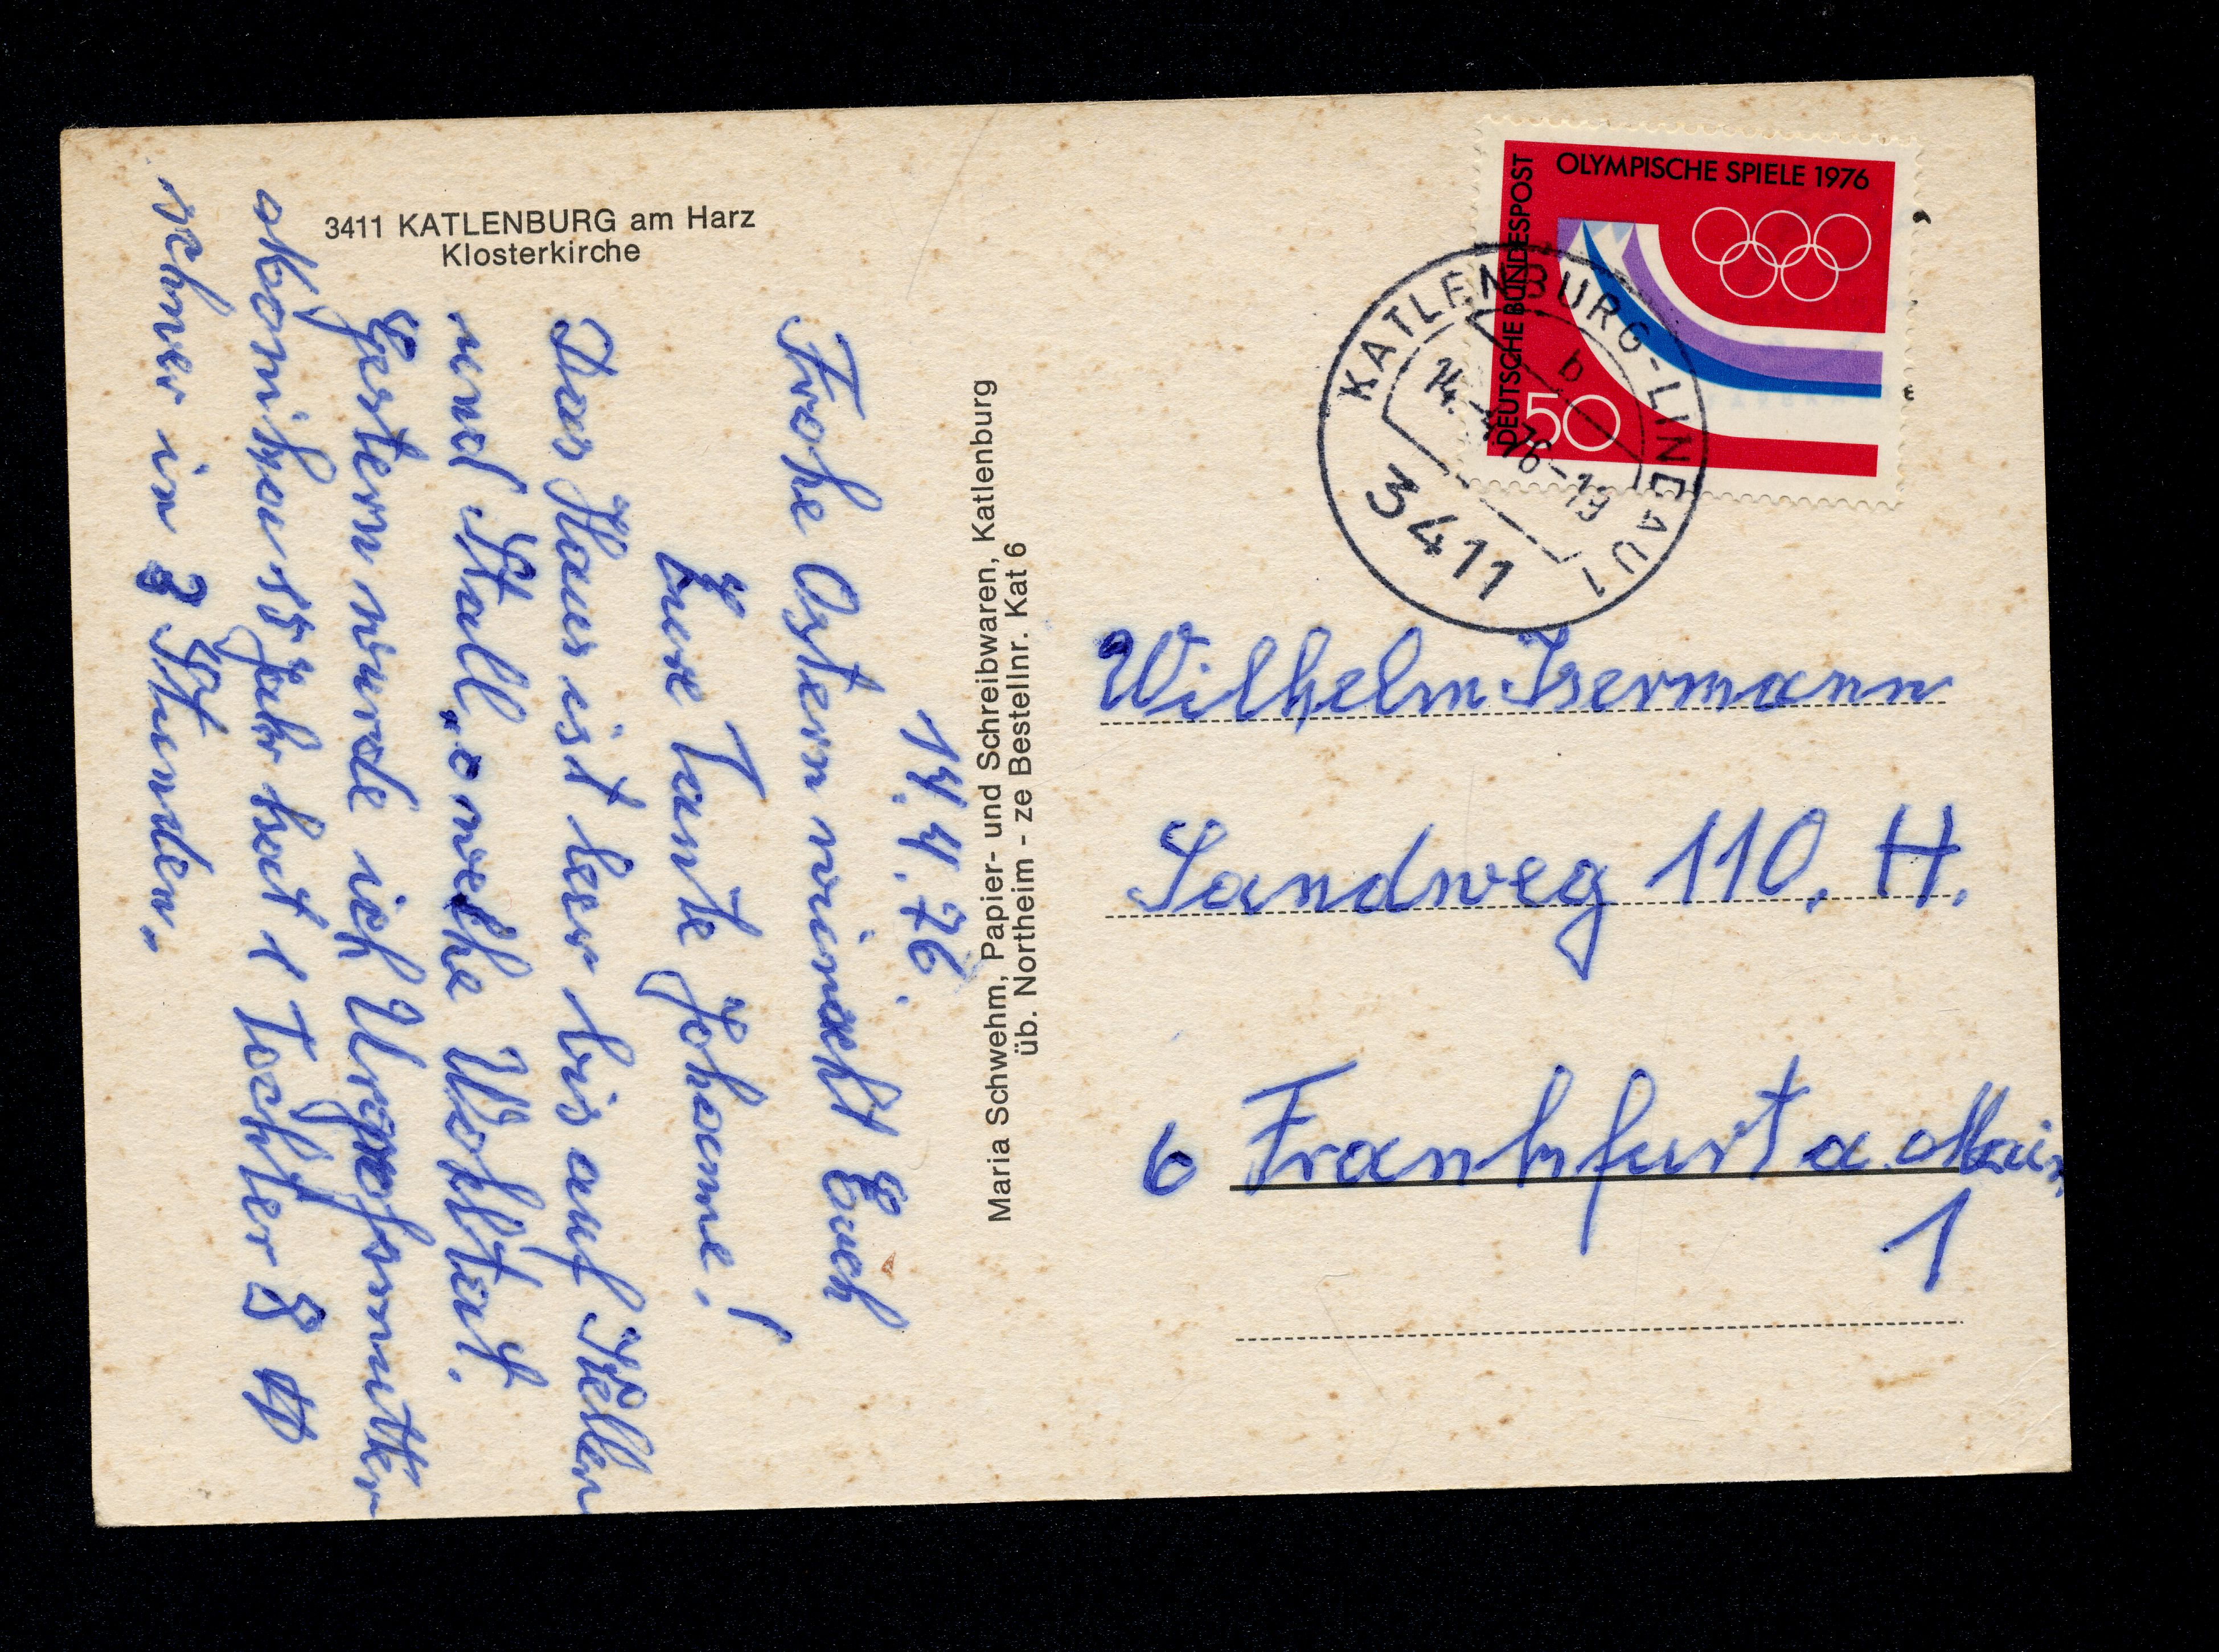 3411 KATLENBURG am Harz
Klosterkirche
14.4.76.
Frohe Ostern wünscht Euch
Eure Tante Johanne!
Das Haus ist leer bis auf Keller
und Stall, welche Wohltat.
Gestern wurde ich Urgroßmutter
Monika ihr hat 1 Tochter 8 tt
schwer in 3 Stunden.
Maria Schwehm, Papier- und Schreibwaren, Katlenburg
üb. Northeim - ze Bestellnr. Kat 6
DEUTSCHE BUNDESPOST
OLYMPISCHE SPIELE 1976
50
KATLENBURG-LINDAU 1
b
14.-4.76-19
3411
Wilhelm Isermann
Sandweg 110. H.
6 Frankfurt a. Main
1